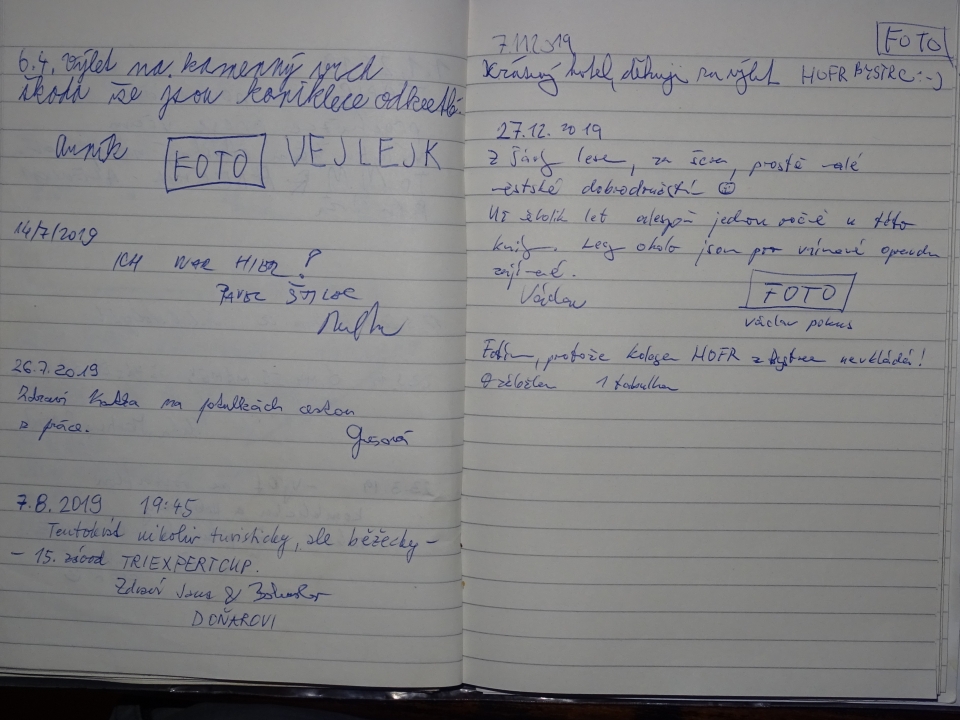 6.4. výlet na kamenný vrch
škoda že jsou koniklece odkvetlé.
FOTO VEJLEJK
14/7/2019
ICH WAR HIER!
PAVEL
26.7.2019
Zdraví Katka na potulkách cestou
z práce.
7.8.2019 19:45
Tentokrát nikoliv turisticky, ale běžecky –
– 15. závod TRIEXPERTCUP.
Zdraví Jana &
DOŇAROVI
FOTO
7.11.2019
Krásný hotel, děkuji za výlet HOFR BYSTRC :-)
27.12.2019
Z lesa, za prostě malé
městské dobrodružství ☺
Už několik let alespoň jednou ročně u této
knihy. Lesy okolo jsou pro mínové opravdu
zajímavé.
Václav
FOTO
václav pokus
Fotím, protože kolega HOFR z Bystrce nevkládá!
1 tabulka